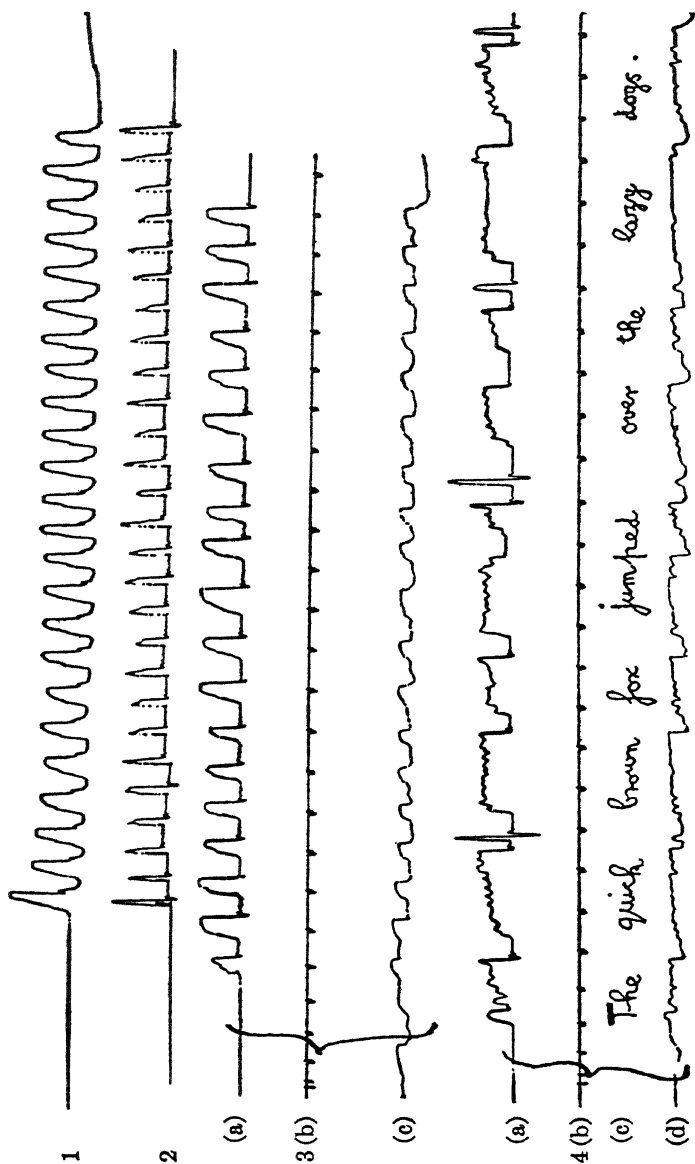 1
2
(a)
3 (b)
(c)
(a)
4 (b)
(c) The quick brown fox jumped over the lazy dogs.
(d)